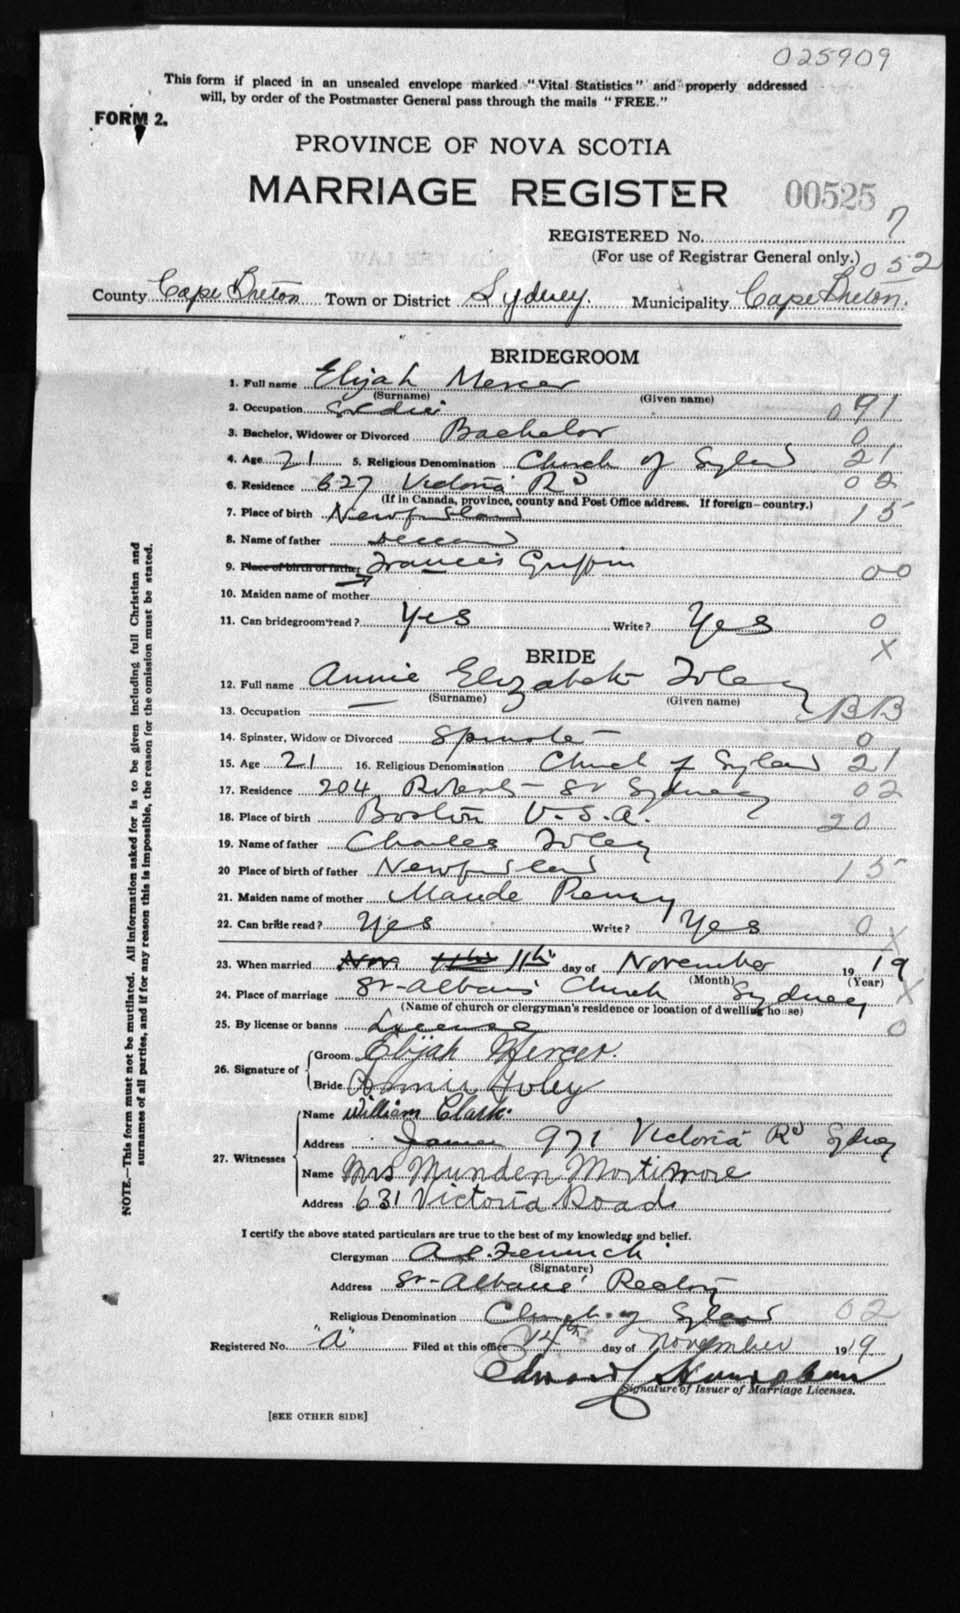 025909
This form if placed in an unsealed envelope marked "Vital Statistics" and properly addressed
will, by order of the Postmaster General pass through the mails "FREE."
FORM 2.
PROVINCE OF NOVA SCOTIA
MARRIAGE REGISTER 00525
REGISTERED No. 7
(For use of Registrar General only.) 052
County Cape Breton Town or District Sydney. Municipality Cape Breton.
BRIDEGROOM
1. Full name Elijah Mercer
(Surname) (Given name)
2. Occupation 091
3. Bachelor, Widower or Divorced Bachelor 0
4. Age 21 5. Religious Denomination Church of England 21
6. Residence 627 Victoria Rd 02
(If in Canada, province, county and Post Office address. If foreign—country.)
7. Place of birth Newfoundland 15
8. Name of father
9. Place of birth of father Francis Griffin 00
10. Maiden name of mother
11. Can bridegroom read? Yes Write? Yes 0
X
BRIDE
12. Full name Annie Elizabeth Foley
(Surname) (Given name)
13. Occupation — BB
14. Spinster, Widow or Divorced Spinster 0
15. Age 21 16. Religious Denomination Church of England 21
17. Residence 204 Roberts St Sydney 02
18. Place of birth Boston U.S.A. 20
19. Name of father Charles Foley
20 Place of birth of father Newfoundland 15
21. Maiden name of mother Maude Penny
22. Can bride read? Yes Write? Yes 0
X
23. When married Nov. 11th 11th day of November 1919
(Month) (Year)
24. Place of marriage St-Albans Church Sydney X
(Name of church or clergyman's residence or location of dwelling house)
25. By license or banns License 0
26. Signature of
Groom Elijah Mercer.
Bride Annie Foley
27. Witnesses
Name William Clark.
Address James 971 Victoria Rd Sydney
Name Mrs Munden Mortimore
Address 631 Victoria Road
I certify the above stated particulars are true to the best of my knowledge and belief.
Clergyman
(Signature)
Address St-Albans' Rectory
Religious Denomination Church of England 02
Registered No. "A" Filed at this office 14th day of November 1919
Edward
Signature of Issuer of Marriage Licenses.
[SEE OTHER SIDE]
NOTE.—This form must not be mutilated. All information asked for is to be given including full Christian and
surnames of all parties, and if for any reason this is impossible, the reason for the omission must be stated.